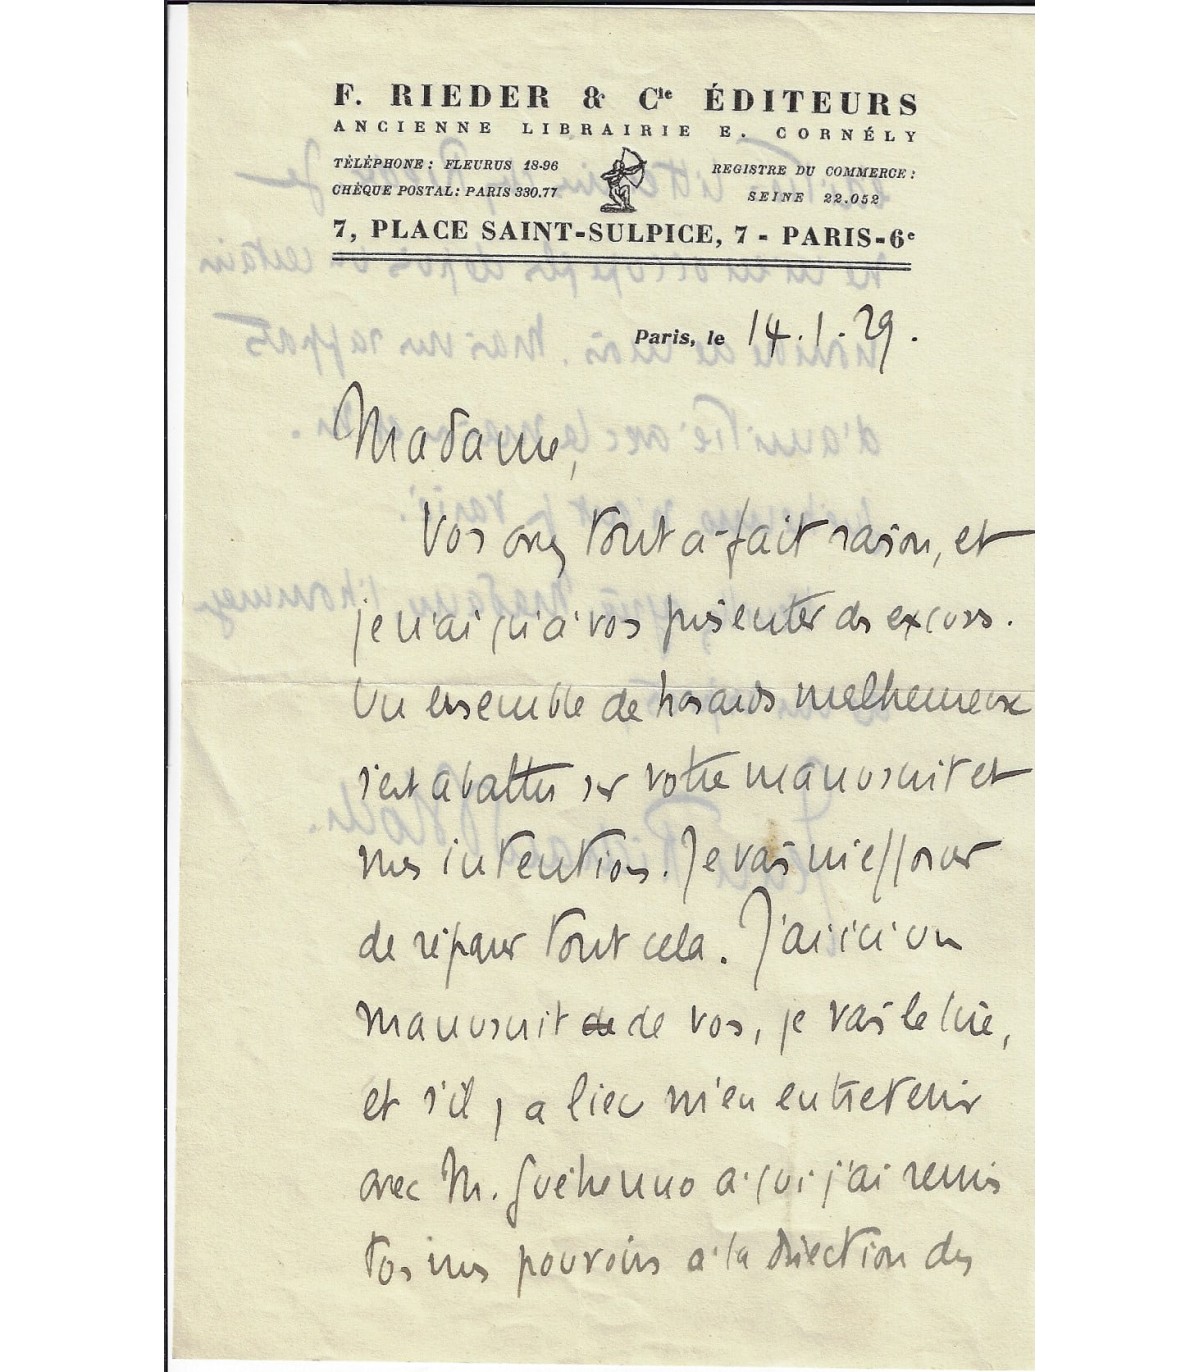 F. RIEDER & Cie ÉDITEURS
ANCIENNE LIBRAIRIE E. CORNÉLY
TÉLÉPHONE : FLEURUS 18-96
CHÈQUE POSTAL : PARIS 330.77
REGISTRE DU COMMERCE :
SEINE 22.052
7, PLACE SAINT-SULPICE, 7 - PARIS-6e
Paris, le 14.1.29.
Madame,
Vous avez tout à fait raison, et
je n'ai qu'à vous présenter des excuses.
Un ensemble de hasards malheureux
s'est abattu sur votre manuscrit et
mes intentions. Je vais m'efforcer
de réparer tout cela. J'ai ici un
manuscrit de de vous, je vais le lire,
et s'il y a lieu m'en entretenir
avec M. Guéhenno à qui j'ai remis
tous mes pouvoirs à la direction des